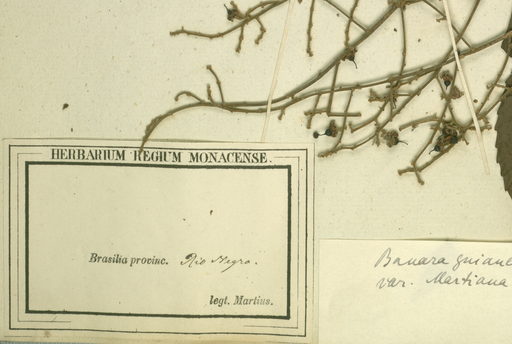 HERBARIUM REGIUM MONACENSE.
Brasilia provinc. Rio Negro.
legt. Martius.
Banara guiane
var. Martiana